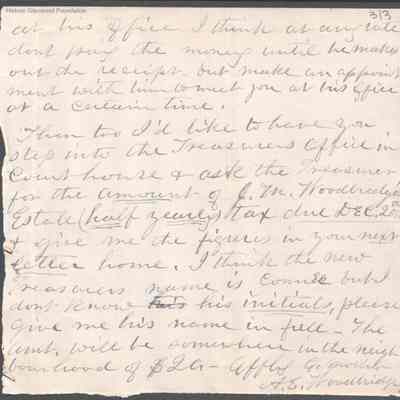 Historic Glenwood Foundation
3/3
at his office I think at any rate
dont pay the money until he makes
out the receipt. but make an appoint
ment with him to meet you at his office
at a certain time.
Then too I'd like to have you
step into the Treasurers office in
Court house & ask the Treasurer
for the amount of J. M. Woodbridge
Estate (half yearly) tax due DEC. 20th
& give me the figures in your next
letter home. I think the new
Treasurers name is Comee but I
dont know his his initials, please
give me his name in full - The
amt. will be somewhere in the neigh
bourhood of $20 - Affly
A. E. Woodbridge